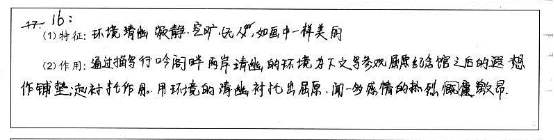 16:
(1)特征:环境清幽 寂静.空旷.无人.如画中一样美丽
(2)作用:通过描写行吟阁畔两岸清幽的环境为下文写参观屈原纪念馆之后的遐想
作铺垫.起衬托作用.用环境的清幽衬托出屈原.闻一多感情的热烈 激昂.